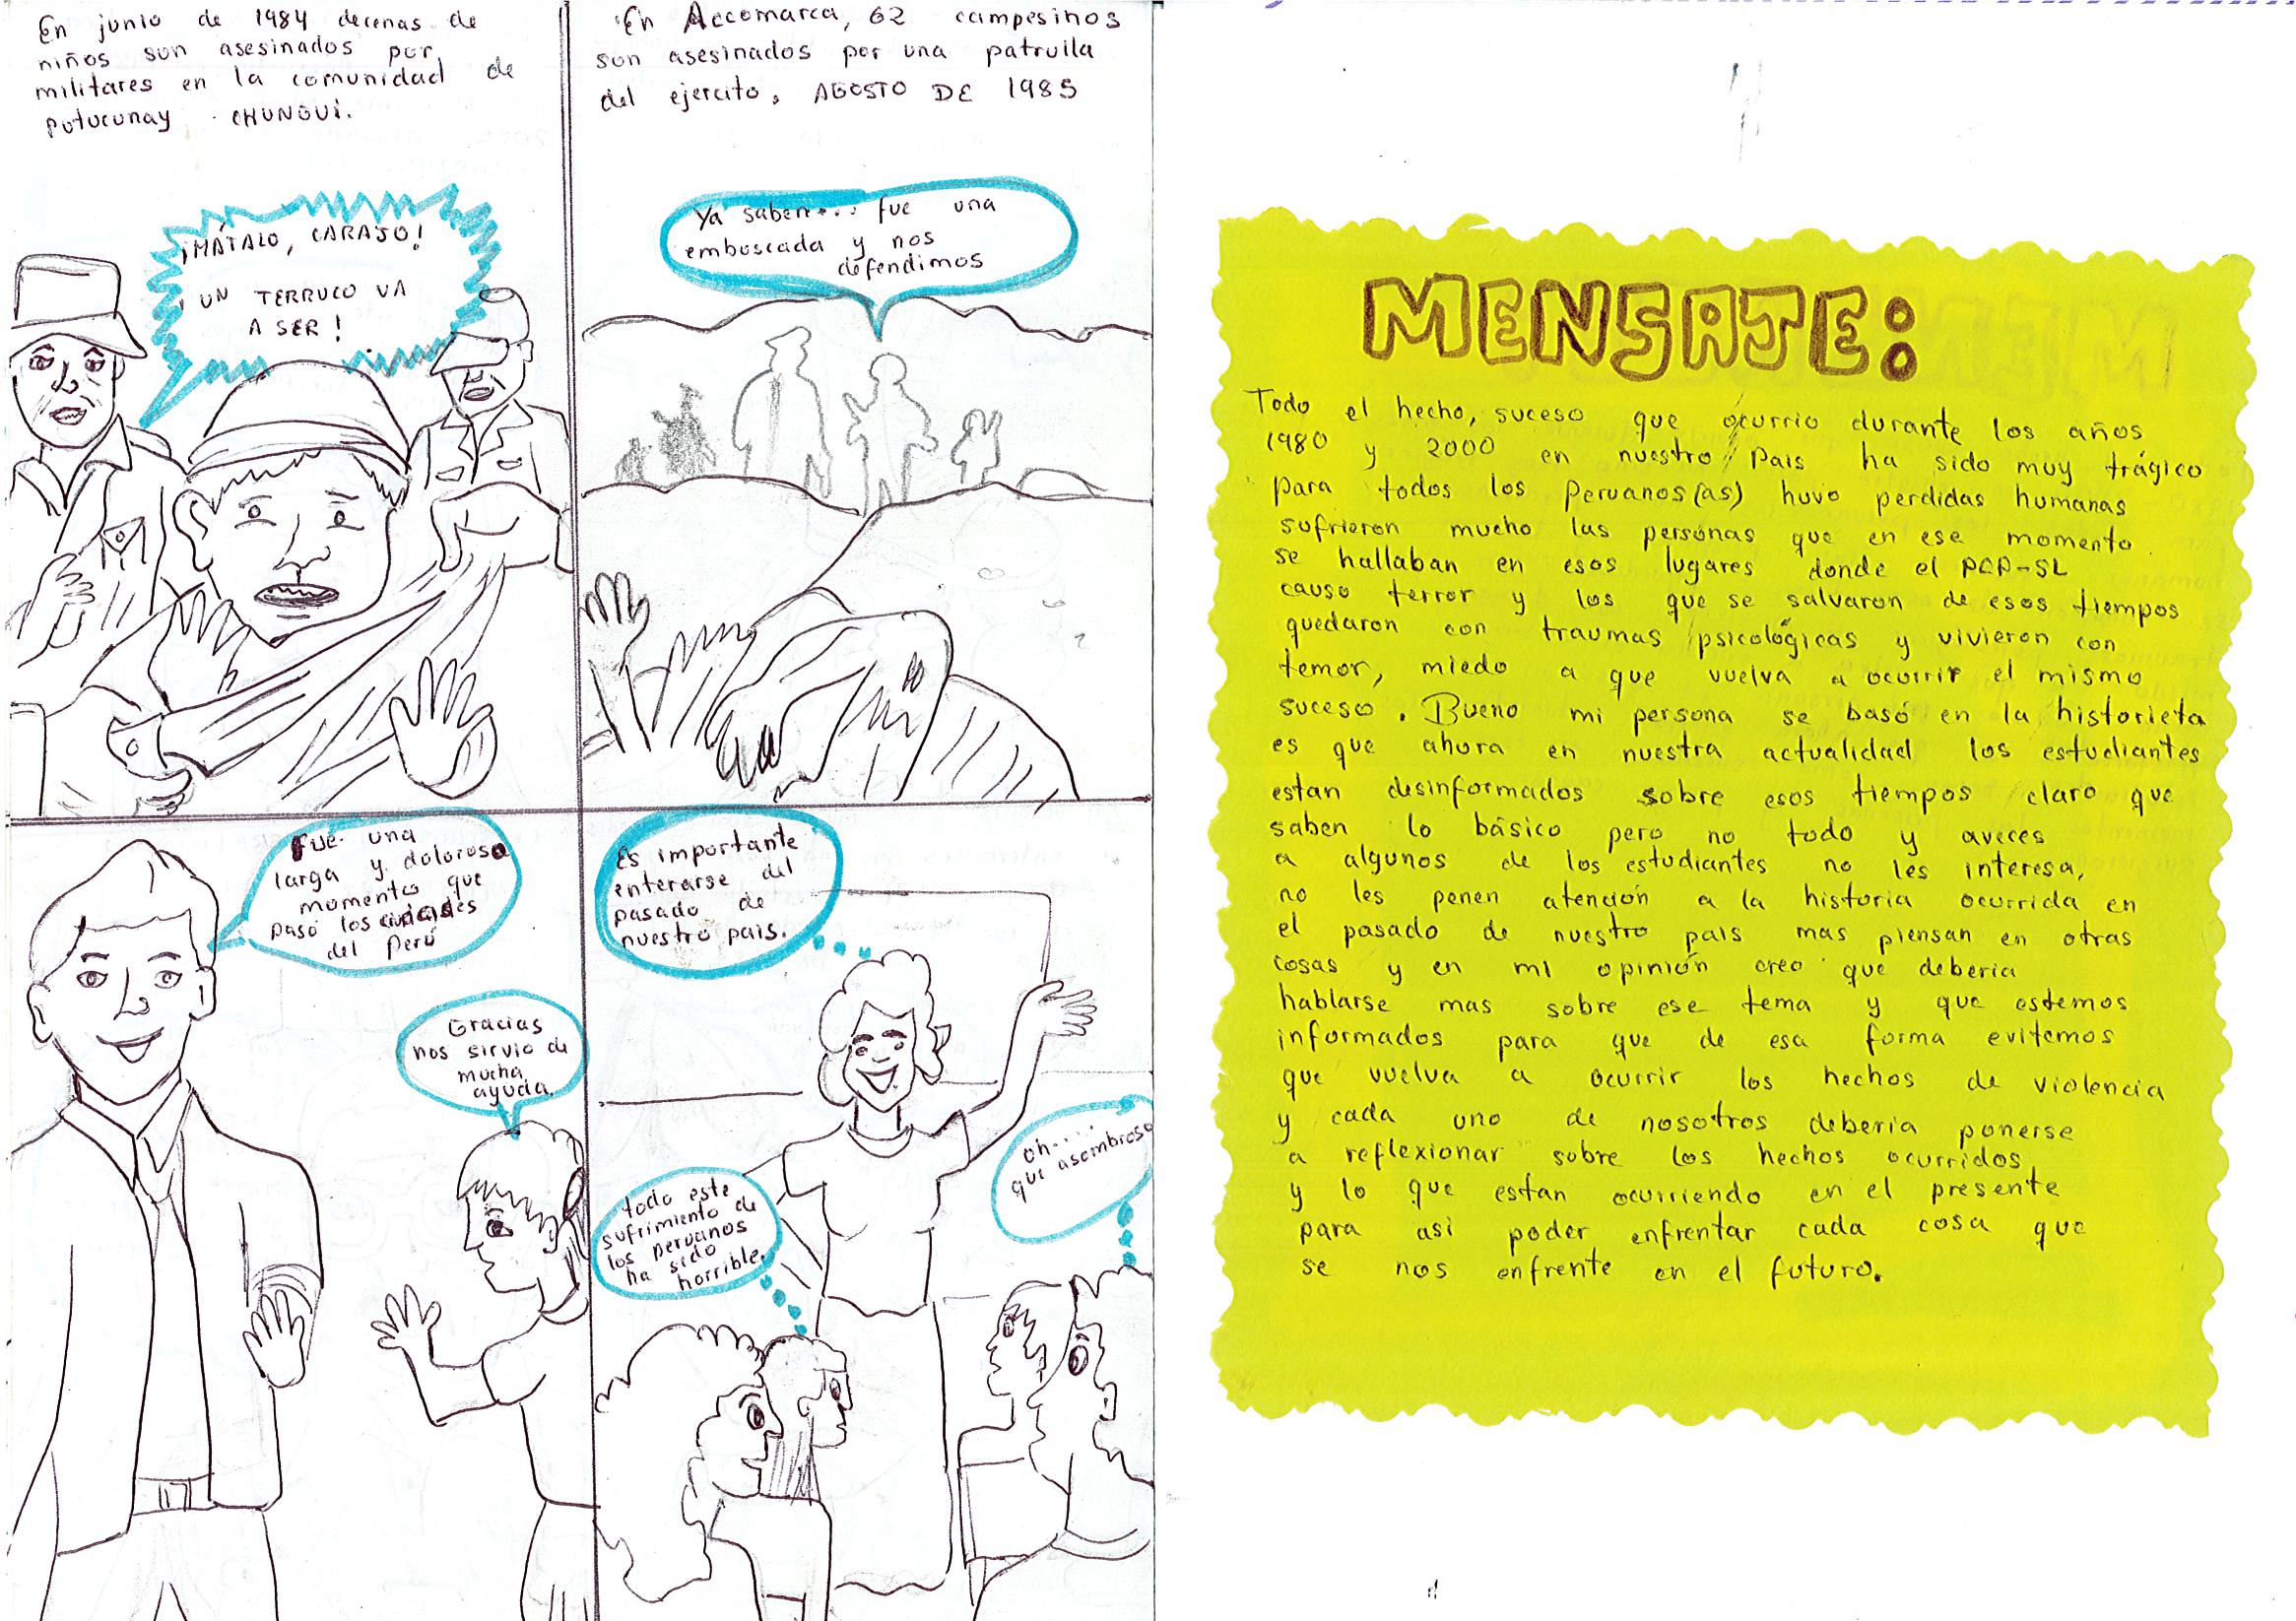 En junio de 1984 decenas de
niños son asesinados por
militares en la comunidad de
putucunay - CHUNGUI.
¡MÁTALO, CARAJO!
¡UN TERRUCO VA
A SER!
En Accomarca, 62 campesinos
son asesinados por una patrulla
del ejercito, AGOSTO DE 1985
Ya saben.... fue una
emboscada y nos
defendimos
Fue una
larga y dolorosa
momentos que
pasó los
del Perú
Gracias
nos sirvio de
mucha
ayuda.
Es importante
enterarse del
pasado de
nuestro pais.
todo este
sufrimiento de
los peruanos
ha sido
horrible.
oh.....
que asombroso
MENSAJE:
Todo el hecho, suceso que ocurrio durante los años
1980 y 2000 en nuestro Pais ha sido muy trágico
para todos los Peruanos(as) huvo perdidas humanas
sufrieron mucho las persónas que en ese momento
se hallaban en esos lugares donde el PCP-SL
causo terror y los que se salvaron de esos tiempos
quedaron con traumas psicológicas y vivieron con
temor, miedo a que vuelva a ocurrir el mismo
suceso. Bueno mi persona se basó en la historieta
es que ahora en nuestra actualidad los estudiantes
estan desinformados sobre esos tiempos claro que
saben lo básico pero no todo y aveces
a algunos de los estudiantes no les interesa,
no les ponen atención a la historia ocurrida en
el pasado de nuestro pais mas piensan en otras
cosas y en mi opinión creo que deberia
hablarse mas sobre ese tema y que estemos
informados para que de esa forma evitemos
que vuelva a ocurrir los hechos de violencia
y cada uno de nosotros deberia ponerse
a reflexionar sobre los hechos ocurridos
y lo que estan ocurriendo en el presente
para asi poder enfrentar cada cosa que
se nos enfrente en el futuro.